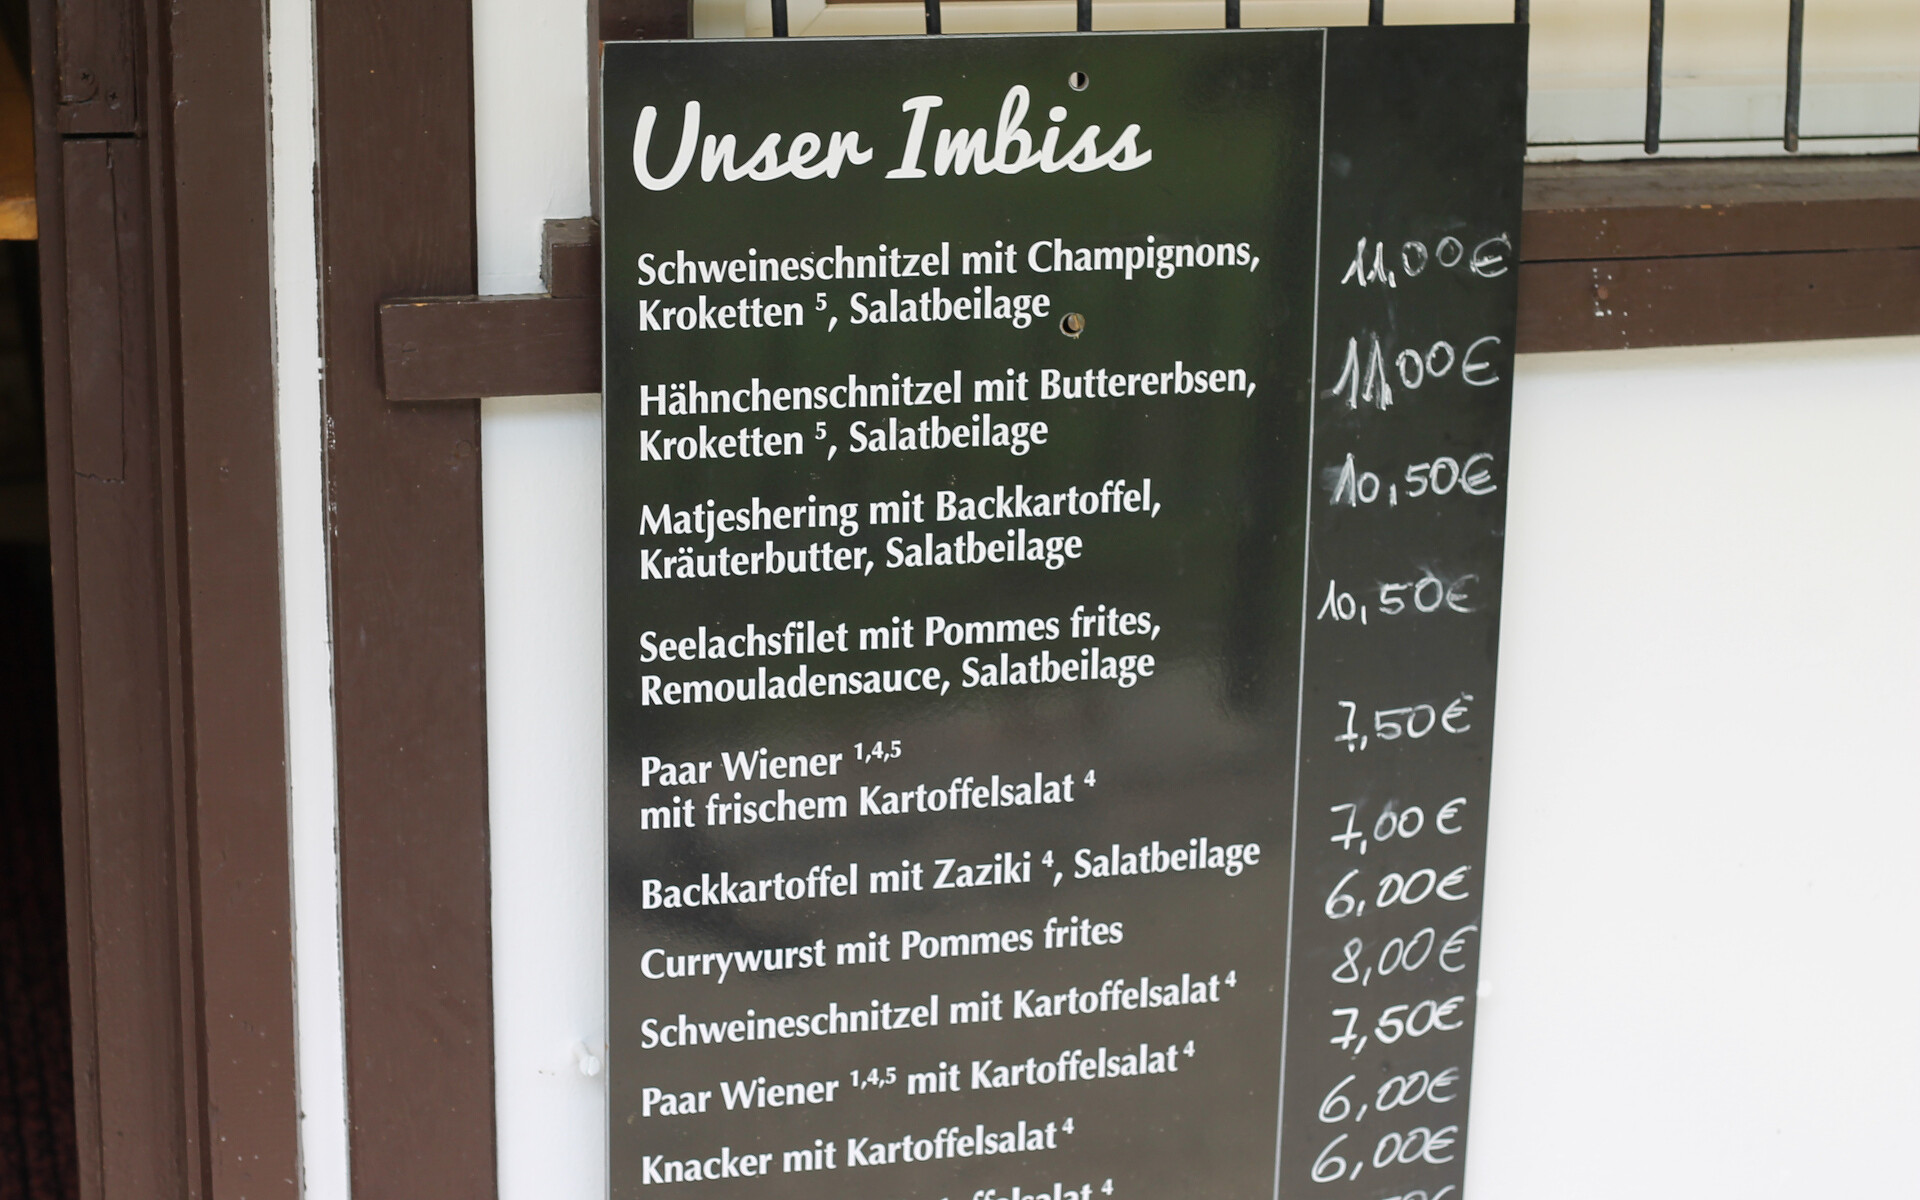 Unser Imbiss
Schweineschnitzel mit Champignons, 11,00€
Kroketten ⁵, Salatbeilage
Hähnchenschnitzel mit Buttererbsen, 11,00€
Kroketten ⁵, Salatbeilage
Matjeshering mit Backkartoffel, 10,50€
Kräuterbutter, Salatbeilage
Seelachsfilet mit Pommes frites, 10,50€
Remouladensauce, Salatbeilage
Paar Wiener ¹,⁴,⁵ 7,50€
mit frischem Kartoffelsalat ⁴
Backkartoffel mit Zaziki ⁴, Salatbeilage 7,00€
Currywurst mit Pommes frites 6,00€
Schweineschnitzel mit Kartoffelsalat ⁴ 8,00€
Paar Wiener ¹,⁴,⁵ mit Kartoffelsalat ⁴ 7,50€
Knacker mit Kartoffelsalat ⁴ 6,00€
6,00€